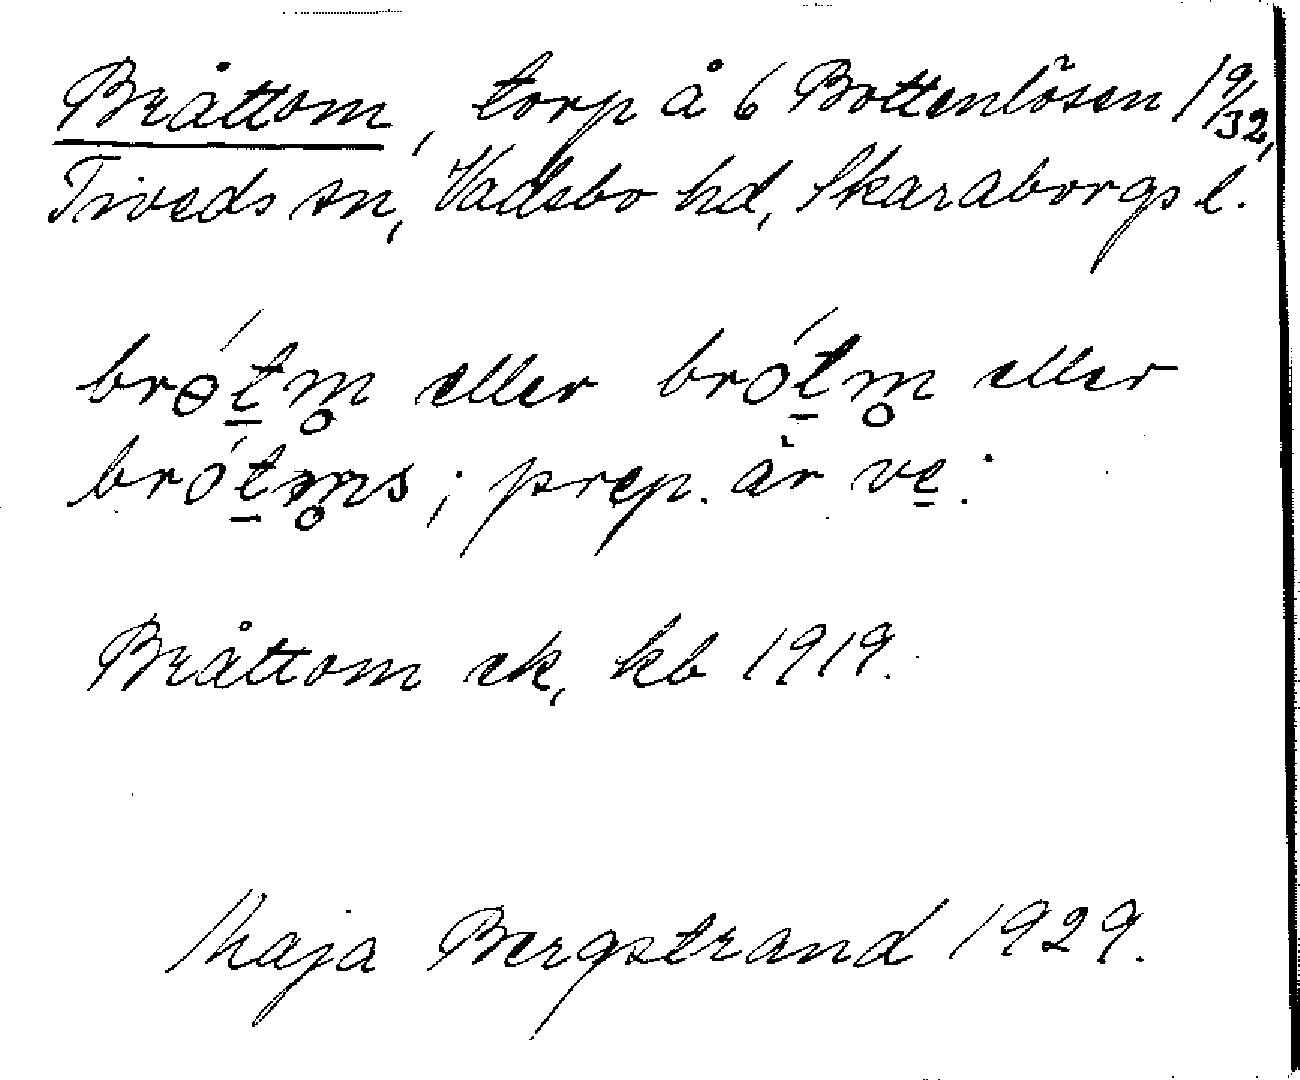 Bråttom, torp å 6 Bottenlösen 1 9/32,
Tiveds sn, Vadsbo hd, Skaraborgs l.
brɵ́t̲m̥ eller brót̲m̥ eller
brót̲m̥s; prep. är ve̲.
Bråttom ek, kb 1919.
Maja Bergstrand 1929.